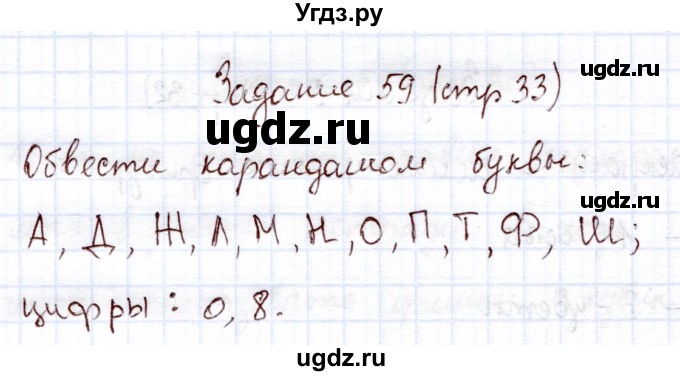 Угдз.ру
Задание 59 (стр 33)
ugdz.ru
ugdz.ru
Обвести карандашом буквы:
ugdz.ru
А, Д, Ж, Л, М, Н, О, П, Т, Ф, Ш;
цифры: 0, 8.
ugdz.ru